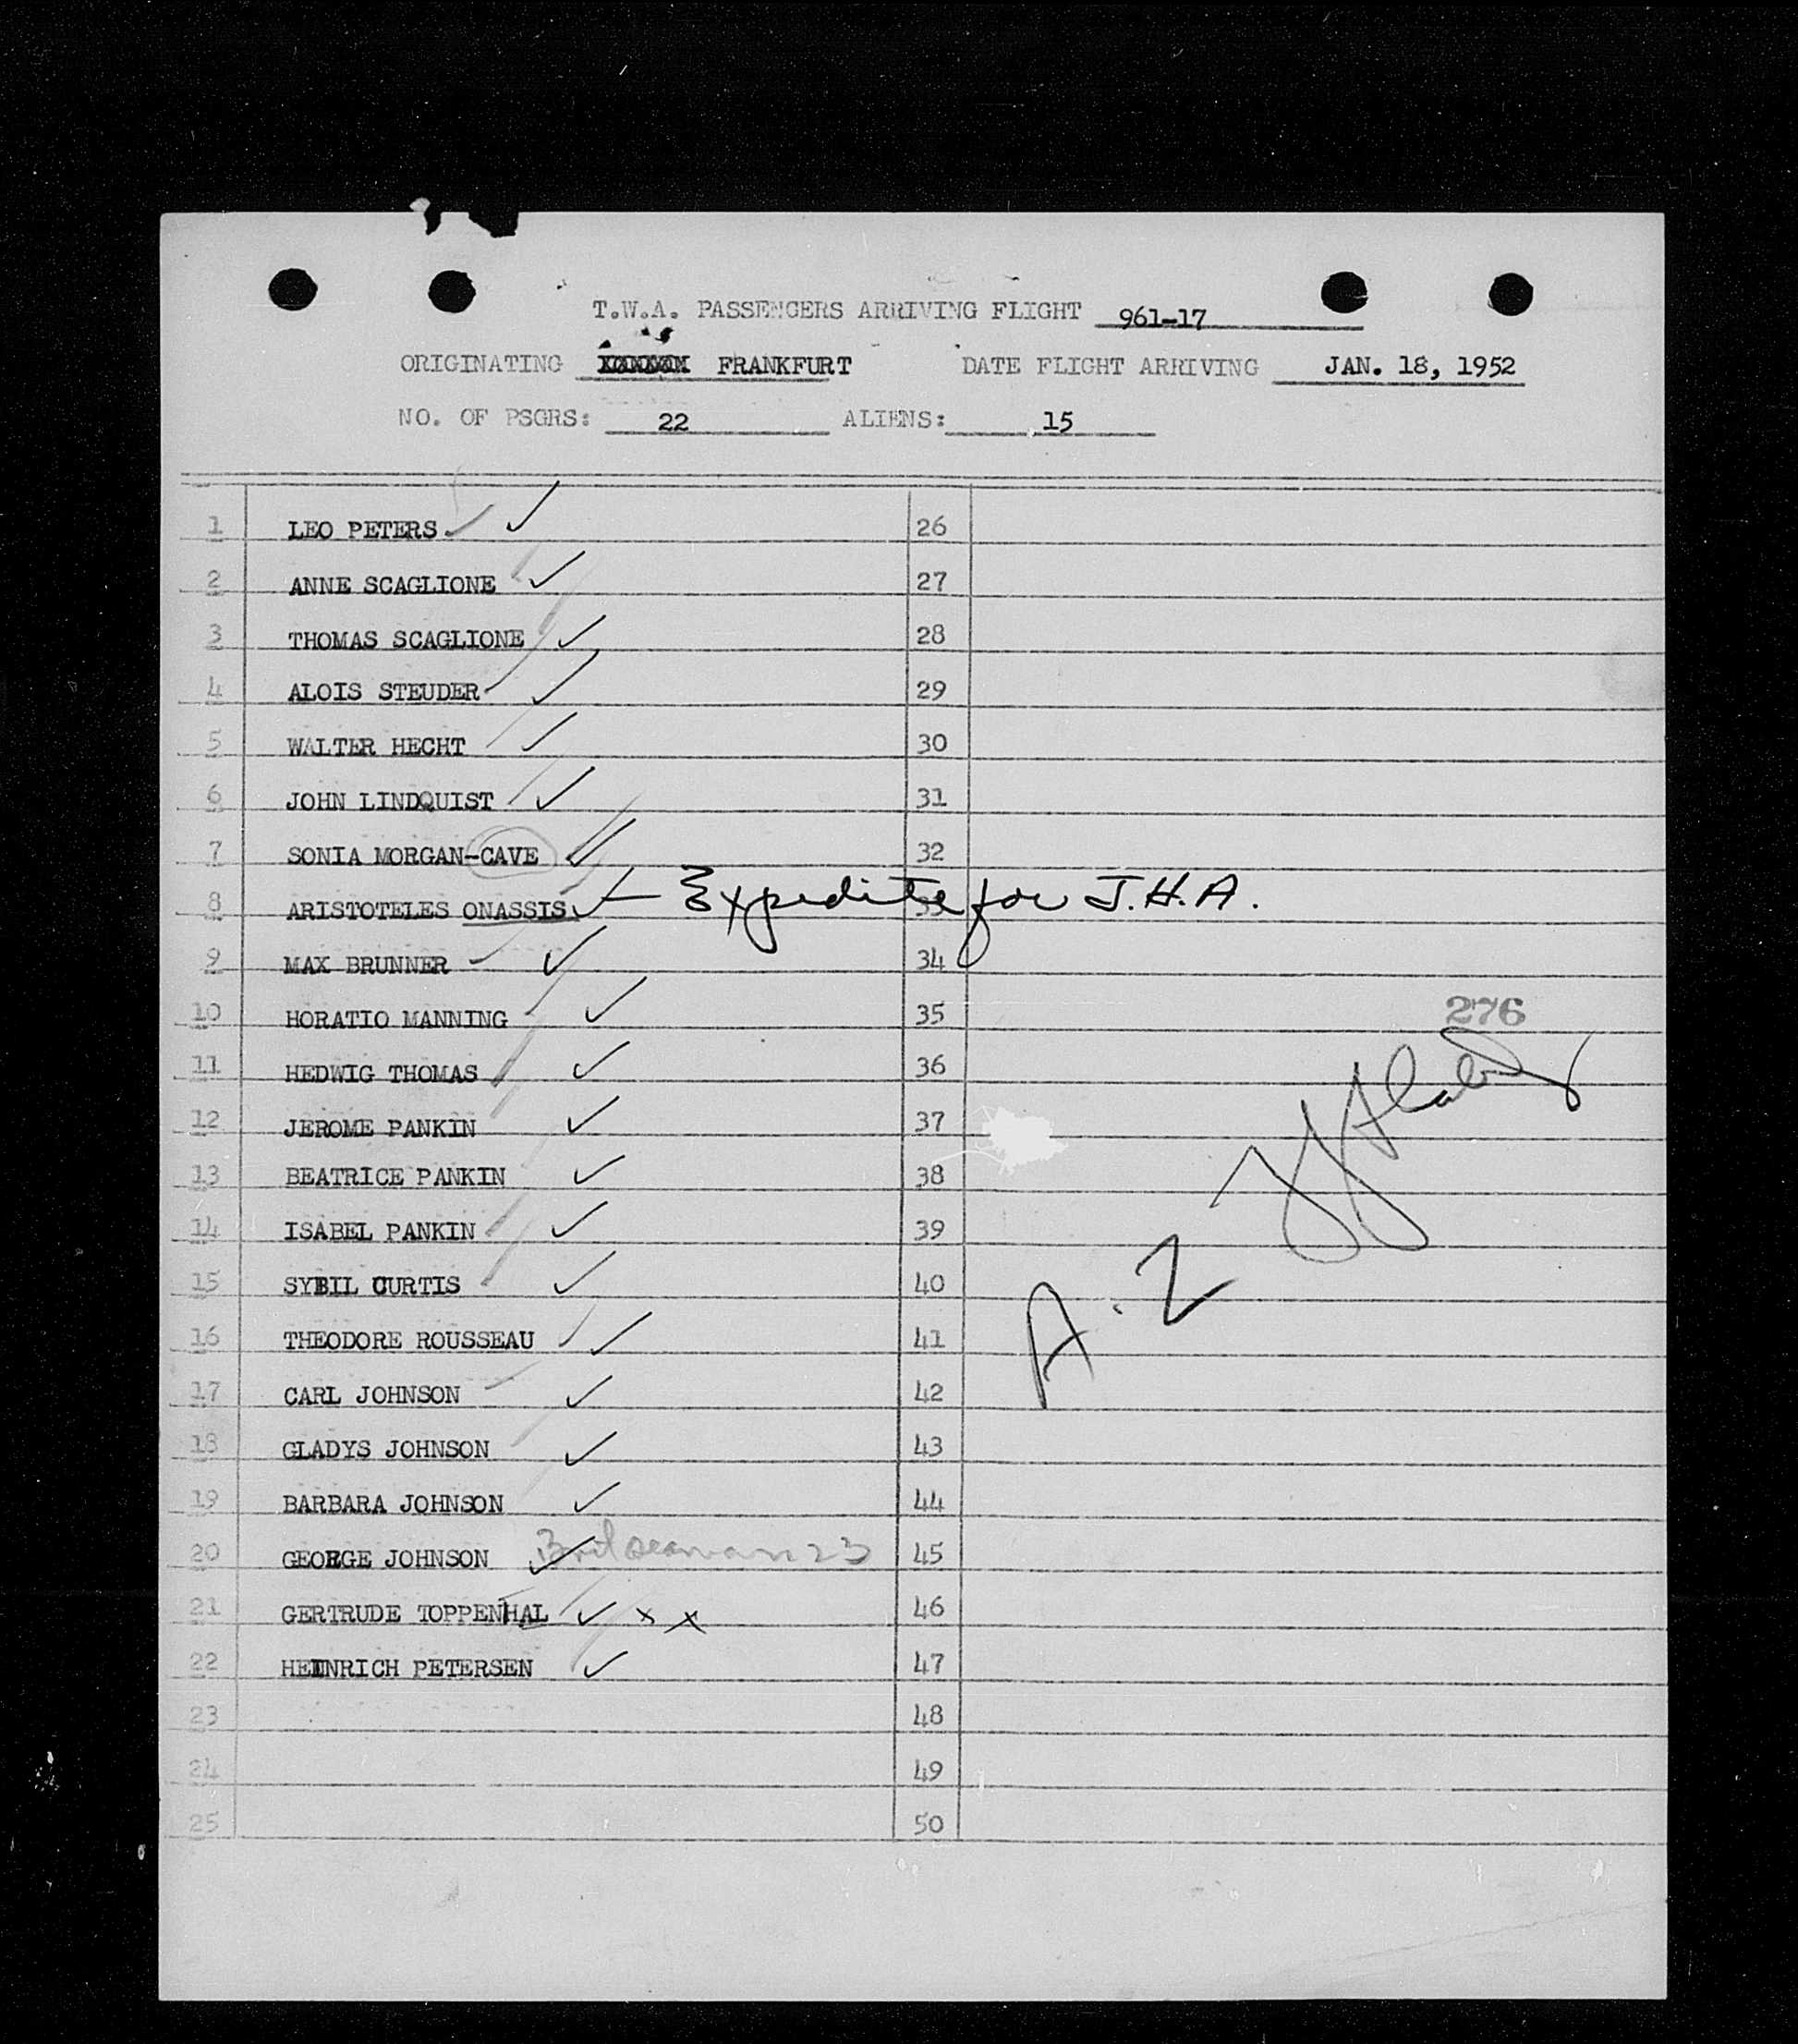 T.W.A. PASSENGERS ARRIVING FLIGHT 961-17
ORIGINATING FRANKFURT DATE FLIGHT ARRIVING JAN. 18, 1952
NO. OF PSGRS: 22 ALIENS: 15
1 LEO PETERS 26
2 ANNE SCAGLIONE 27
3 THOMAS SCAGLIONE 28
4 ALOIS STEUDER 29
5 WALTER HECHT 30
6 JOHN LINDQUIST 31
7 SONIA MORGAN-CAVE 32
8 ARISTOTELES ONASSIS - Expedite for J.H.A. 33
9 MAX BRUNNER 34
10 HORATIO MANNING 35
276
11 HEDWIG THOMAS 36
12 JEROME PANKIN 37
13 BEATRICE PANKIN 38
14 ISABEL PANKIN 39
15 SYBIL CURTIS 40
A-2
16 THEODORE ROUSSEAU 41
17 CARL JOHNSON 42
18 GLADYS JOHNSON 43
19 BARBARA JOHNSON 44
20 GEORGE JOHNSON 23 45
21 GERTRUDE TOPPENHAL x x 46
22 HEINRICH PETERSEN 47
23 48
24 49
25 50